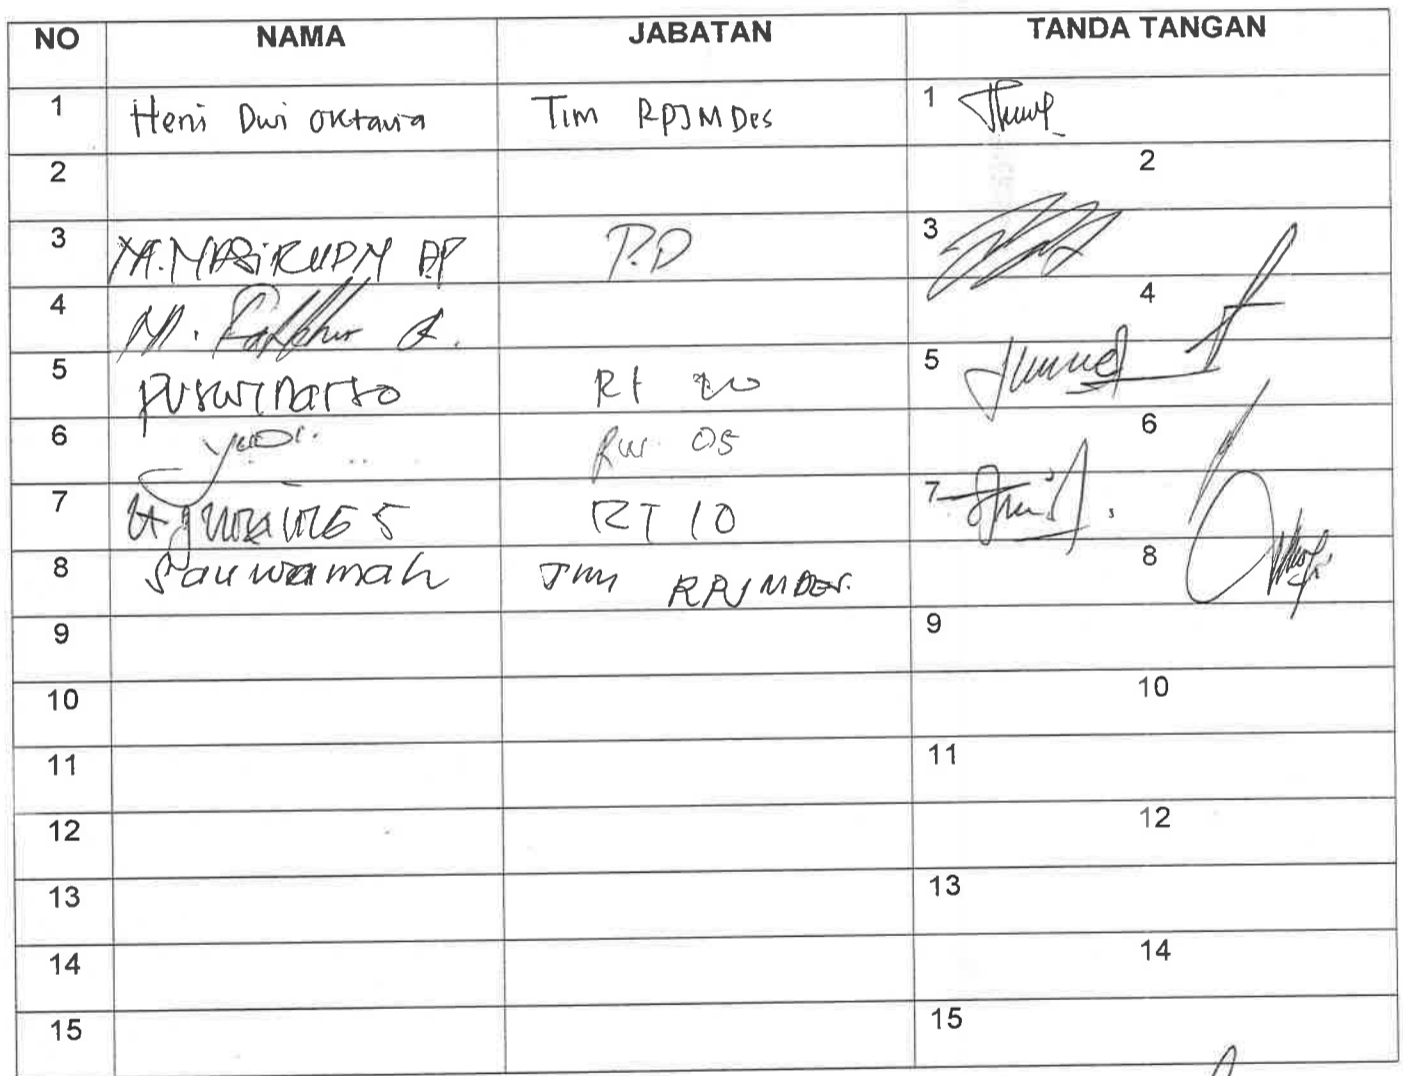 NO NAMA JABATAN TANDA TANGAN
1 Heni Dwi Oktavia Tim RPJMDes 1
2 2
3 M. MASiRUDM AP P.D 3
4 M. 4
5 Puswinarso Rt 20 5
6 yudi. Rw. 05 6
7 RT 10 7
8 Sauwamah Tim RPJMDes. 8
9 9
10 10
11 11
12 12
13 13
14 14
15 15